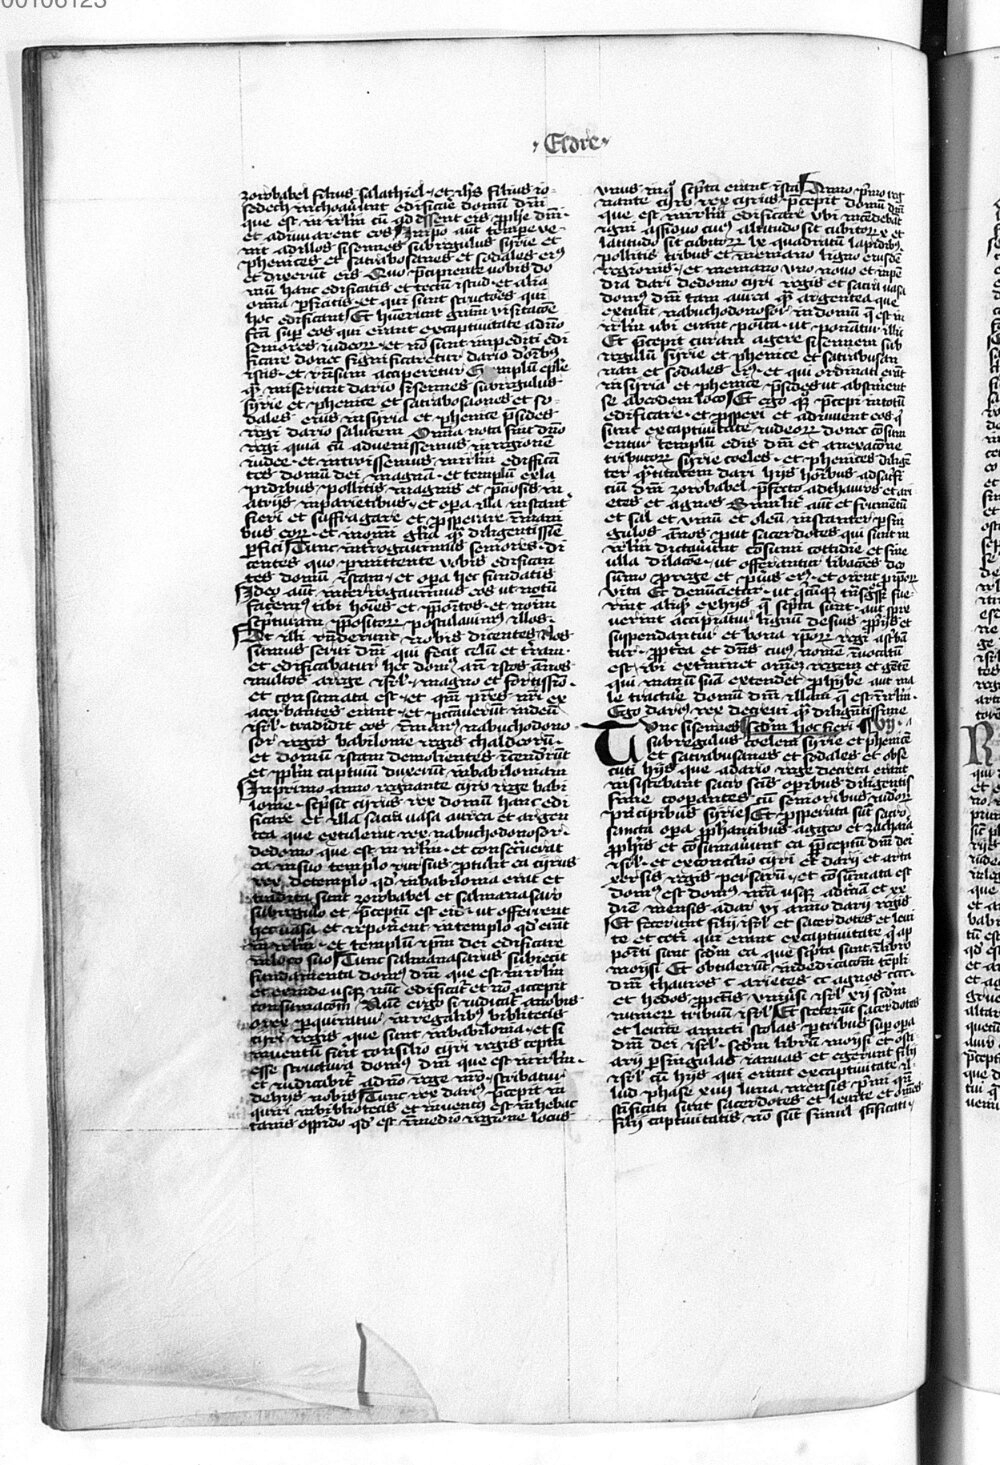 · Esdre ·
zorobabel filius salathiel · et ihs filius io-
sedech inchoauerunt edificare domum dni
que est in irlm cū adessent eis ꝓphe dni ·
et adiuuarent eos Inipo aut tempe ve-
nit ad illos sisennes subregulus syrie et
phenices et satrabosanes et sodales eius
et dixerunt eis Quo p̄cipiente vobis do
mū hanc edificatis et tectū istud et alia
omīa perficitis · et qui sunt structores qui
hoc edificant Et habuerunt grām visitacōe
facta sup eos qui erant ex captiuitate a dno
seniores iudeorum · et nō sunt impediti edi
ficare donec significaretur dario de oībus
istis · et responsum acciperetur Exemplū eple
qm miserunt dario Sisennes subregulus
syrie et phenice et satrabosanes et so-
dales eius in syria et phenice p̄sides
regi dario salutem Omīa nota sint dno
regi quia cū aduenissemus in regionē
iudee · et introissemus in irlm edifican
tes domū dei magnam · et templū ex la
pidibus politis magnis et p̄ciosis in
parietibus · et opera illa instant
fieri et suffragare et ꝓsperare in mani
bus eorum · et in omni gloria qm diligentissime
perfici Tunc interrogauimus seniores · di
centes quo permittente vobis edifican
tes domū istam · et opera hec fundatis
Ideo aut interrogauimus eos ut notū
facerem tibi homīes et p̄positos · et noīm
scripturam p̄positorum postulauimus illos ·
At illi respōderunt nobis dicentes Nos
sumus serui dni qui fecit celū et terram ·
et edificabatur hec domus ante istos annos
multos a rege isrl · magno et fortissimo ·
et consumata est · et qm patres nri ex
acerbantes erant · et peccauerunt in deū
isrl · tradidit eos in manus nabuchodono
sor regis babilonie regis chaldeorū ·
et domū istam demolientes incendrunt
et pplm captiuū duxerunt in babiloniam
In primo anno regnante ciro rege babi
lonie · scripsit cirus rex domum hanc edi
ficare et illa sacra vasa aurea et argen
tea que extulerat rex nabuchodonosor ·
de domo que est in irlm · et consecrauerat
ea in suo templo rursus ꝓtulit ea cirus
rex de templo qd in babilonia erat et
tradita sunt zorobabel et salmanasaro
subregulo et p̄ceptū est eis · ut offerrent
hec vasa et reponerent in templo qd erat
in irlm · et templū ipm dei edificare
in loco suo Tunc salmanasarus subiecit
fundamenta domus dni que est in irlm
et exinde usque nūc edificatur et nō accepit
consumacōem · Nunc ergo si iudicatur a nobis
o rex perquiratur in regalibus bibliotecis
ciri regis que sunt in babilonia · et si
inuentū fuerit consilio ciri regis cepta
esse structura domus dni que est in irlm ·
et iudicabitur a dno rege nro · scribatur
de hijs nobis Tunc rex darius p̄cepit in
quiri in bibliotecis et inuentus est in hebac
tanis oppido qd est in medio regione locus
vnus in quo scripta erant ista Anno p̄mo reg
nante ciro rex cirus p̄cepit domū dni
que est in irlm edificare vbi incendebāt
igni assiduo cuius altitudo sit cubitorum x et
latitudo sit cubitorum lx quadratū lapidibus
politis tribus et meniano ligno eiusdē
regionis · et meniano vno nouo et impē
dia dari de domo ciri regis et sacra vasa
domus dni tam aurea qm argentea que
extulit nabuchodonosor in domū que est in
irlm ubi erant posita · ut ponantur illuc
Et p̄cepit curam agere sisennem sub
regulū syrie et phenice et satrabusan
nam et sodales eius · et qui ordinati erāt
in syria et phenice p̄sides ut abstinent
se ab eodem loco Et ergo qm p̄cepi in totū
edificare · et prospexi et adiuuent eos qui
sunt ex captiuitate iudeorum donec cōsum
entur templū edis dni et a vexacōne
tributorum syrie coeles · et phenices diligen
ter quantitatem dari hijs hoībus ad sacrifi
ciū dni zorobabel p̄fecto ad thauros et ari
etes et agnos Similiter aut et frumentū
et sal et vinū et oleū instanter per sin
gulos annos prout sacerdotes qui sunt in
irlm dictauerunt cōsumi cottidie et sine
ulla dilacōe · ut offerantur libacōes deo
summo ꝓ rege et pueris eius · et orent ꝓ ipsorum
vita Et denuncietur · ut quicumque transgressi fue-
rint aliquid ex hijs que scripta sunt · aut spre
uerint accipiatur lignū de suis ꝓprijs et
suspendantur et bona ipsorum regi ascribā
tur · ꝓpterea et dns cuius nomen inuocatū
est · ibi exterminet omnem regem et gentē
qui manū suā extendet prohibere aut ma
le tractare domū dni illam que est in irlm ·
Ego darius rex decreui qm diligentissime
Tunc sisennes secdm hoc fieri vij ·
subregulus coelem syrie et phenice
et satrabusanes et sodales et obse
cuti hijs que a dario rege decreta erant
insistebant sacro scis operibus diligentis
sime cooperantes cū senioribus iudeorum
principibus syrie Et ꝓsperata sunt sacro
sancta opa ꝓphetantibus aggeo et zacharia
ꝓphetis et cōsumauerunt ea p̄ p̄ceptū dni dei
isrl · et ex consilio ciri et darij et arta
xersis regis persarū · et cōsumata est
domus est domus nra usque ad tīam et xx
diē mensis adar vi anno darij regis
Et fecerunt filij isrl et sacerdotes et leui
te et ceteri qui erant ex captiuitate qui ap
positi sunt scdm ea que scripta sunt in libro
moysi Et obtulerunt in dedicacōem tēpli
dni thauros c arietes cc agnos cccc ·
et hedos ꝓ peccatis vniuersi isrl xij scdm
numerum tribuum isrl Et steterunt sacerdotes
et leuite amicti stolas per tribus sup opera
dni dei isrl · scdm librū moysi et osti
arij per singulas ianuas et egerunt filij
isrl cū hijs qui erant ex captiuitate il
lud phase xiiij luna mensis primi qn
scificati sunt sacerdotes et leuite et omēs
filij captiuitatis nō sunt simul scificati ·